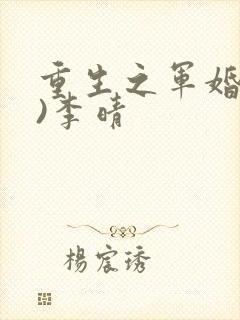 重生之军婚
)李晴
杨宸琇